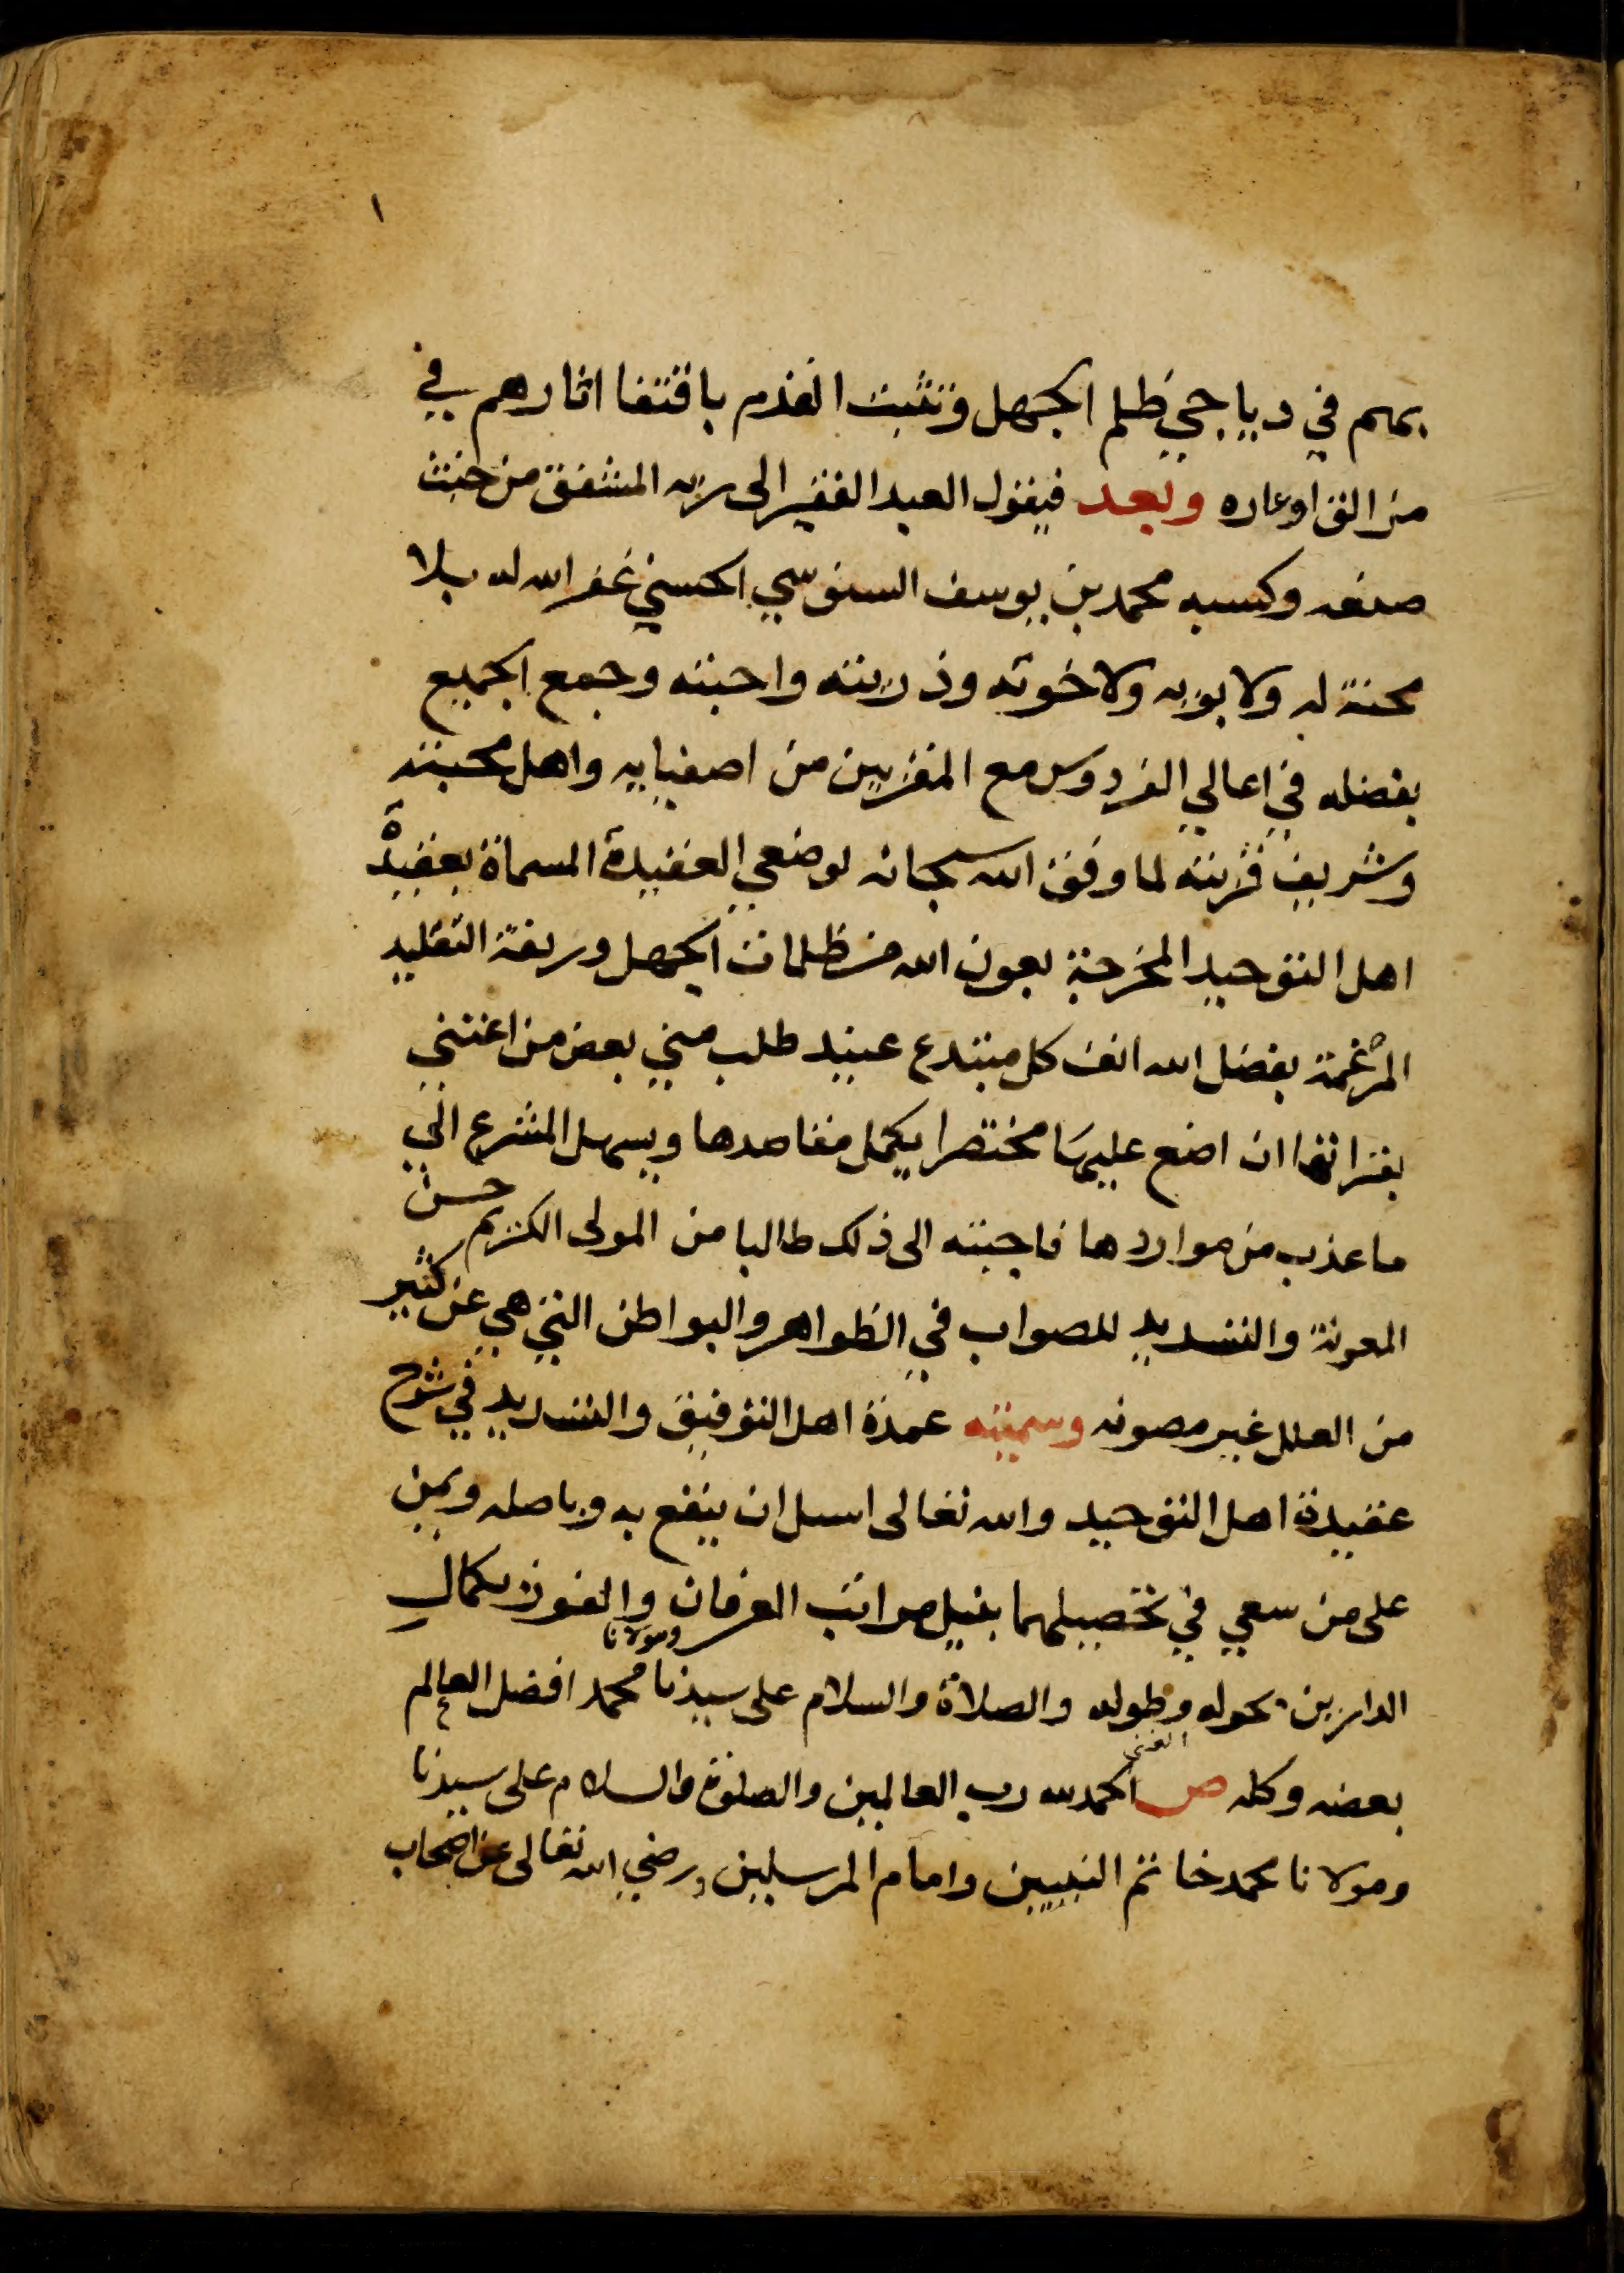 ١
بهم في دياجي ظلم الجهل وتثبت القدم باقتفا اثارهم في
من الق اوعاره وبعد فيقول العبد الفقير الى ربه المشفق من خبث
صنعه وكسبه محمد بن يوسف السنوسي الحسني غفر الله له بلا
محنة له ولابويه ولاخوته وذريته واحبته وجمع الجميع
بفضله في اعالي الفردوس مع المقربين من اصفيايه واهل محبته
وشريف قربته لما وفق الله سبحانه لوضعي العقيدة المسماة بعقيدة
اهل التوحيد المخرجة بعون الله من ظلمات الجهل وربقة التقليد
المرغمة بفضل الله انف كل مبتدع عنيد طلب مني بعض من اعتني
بقراتها ان اضع عليها مختصرا يكمل مقاصدها ويسهل المشرع الي
ما عذب من مواردها فاجبته الى ذلك طالبا من المولى الكريم حسن
المعونة والتسديد للصواب في الظواهر والبواطن التي هي عن كثير
من العلل غير مصونه وسميته عمدة اهل التوفيق والتسديد في شرح
عقيدة اهل التوحيد والله تعالى اسل ان ينفع به وباصله ويمن
على من سعي في تحصيلهما بنيل مراتب العرفان والفوز بكمال
الدارين بحوله وطوله والصلاة والسلام على سيدنا ومولانا محمد افضل العالم
بعضه وكله ص الحمد لله رب العالمين والصلوة والسلام على سيدنا
ومولانا محمد خاتم النبيين وامام المرسلين ورضي الله تعالى عن اصحاب